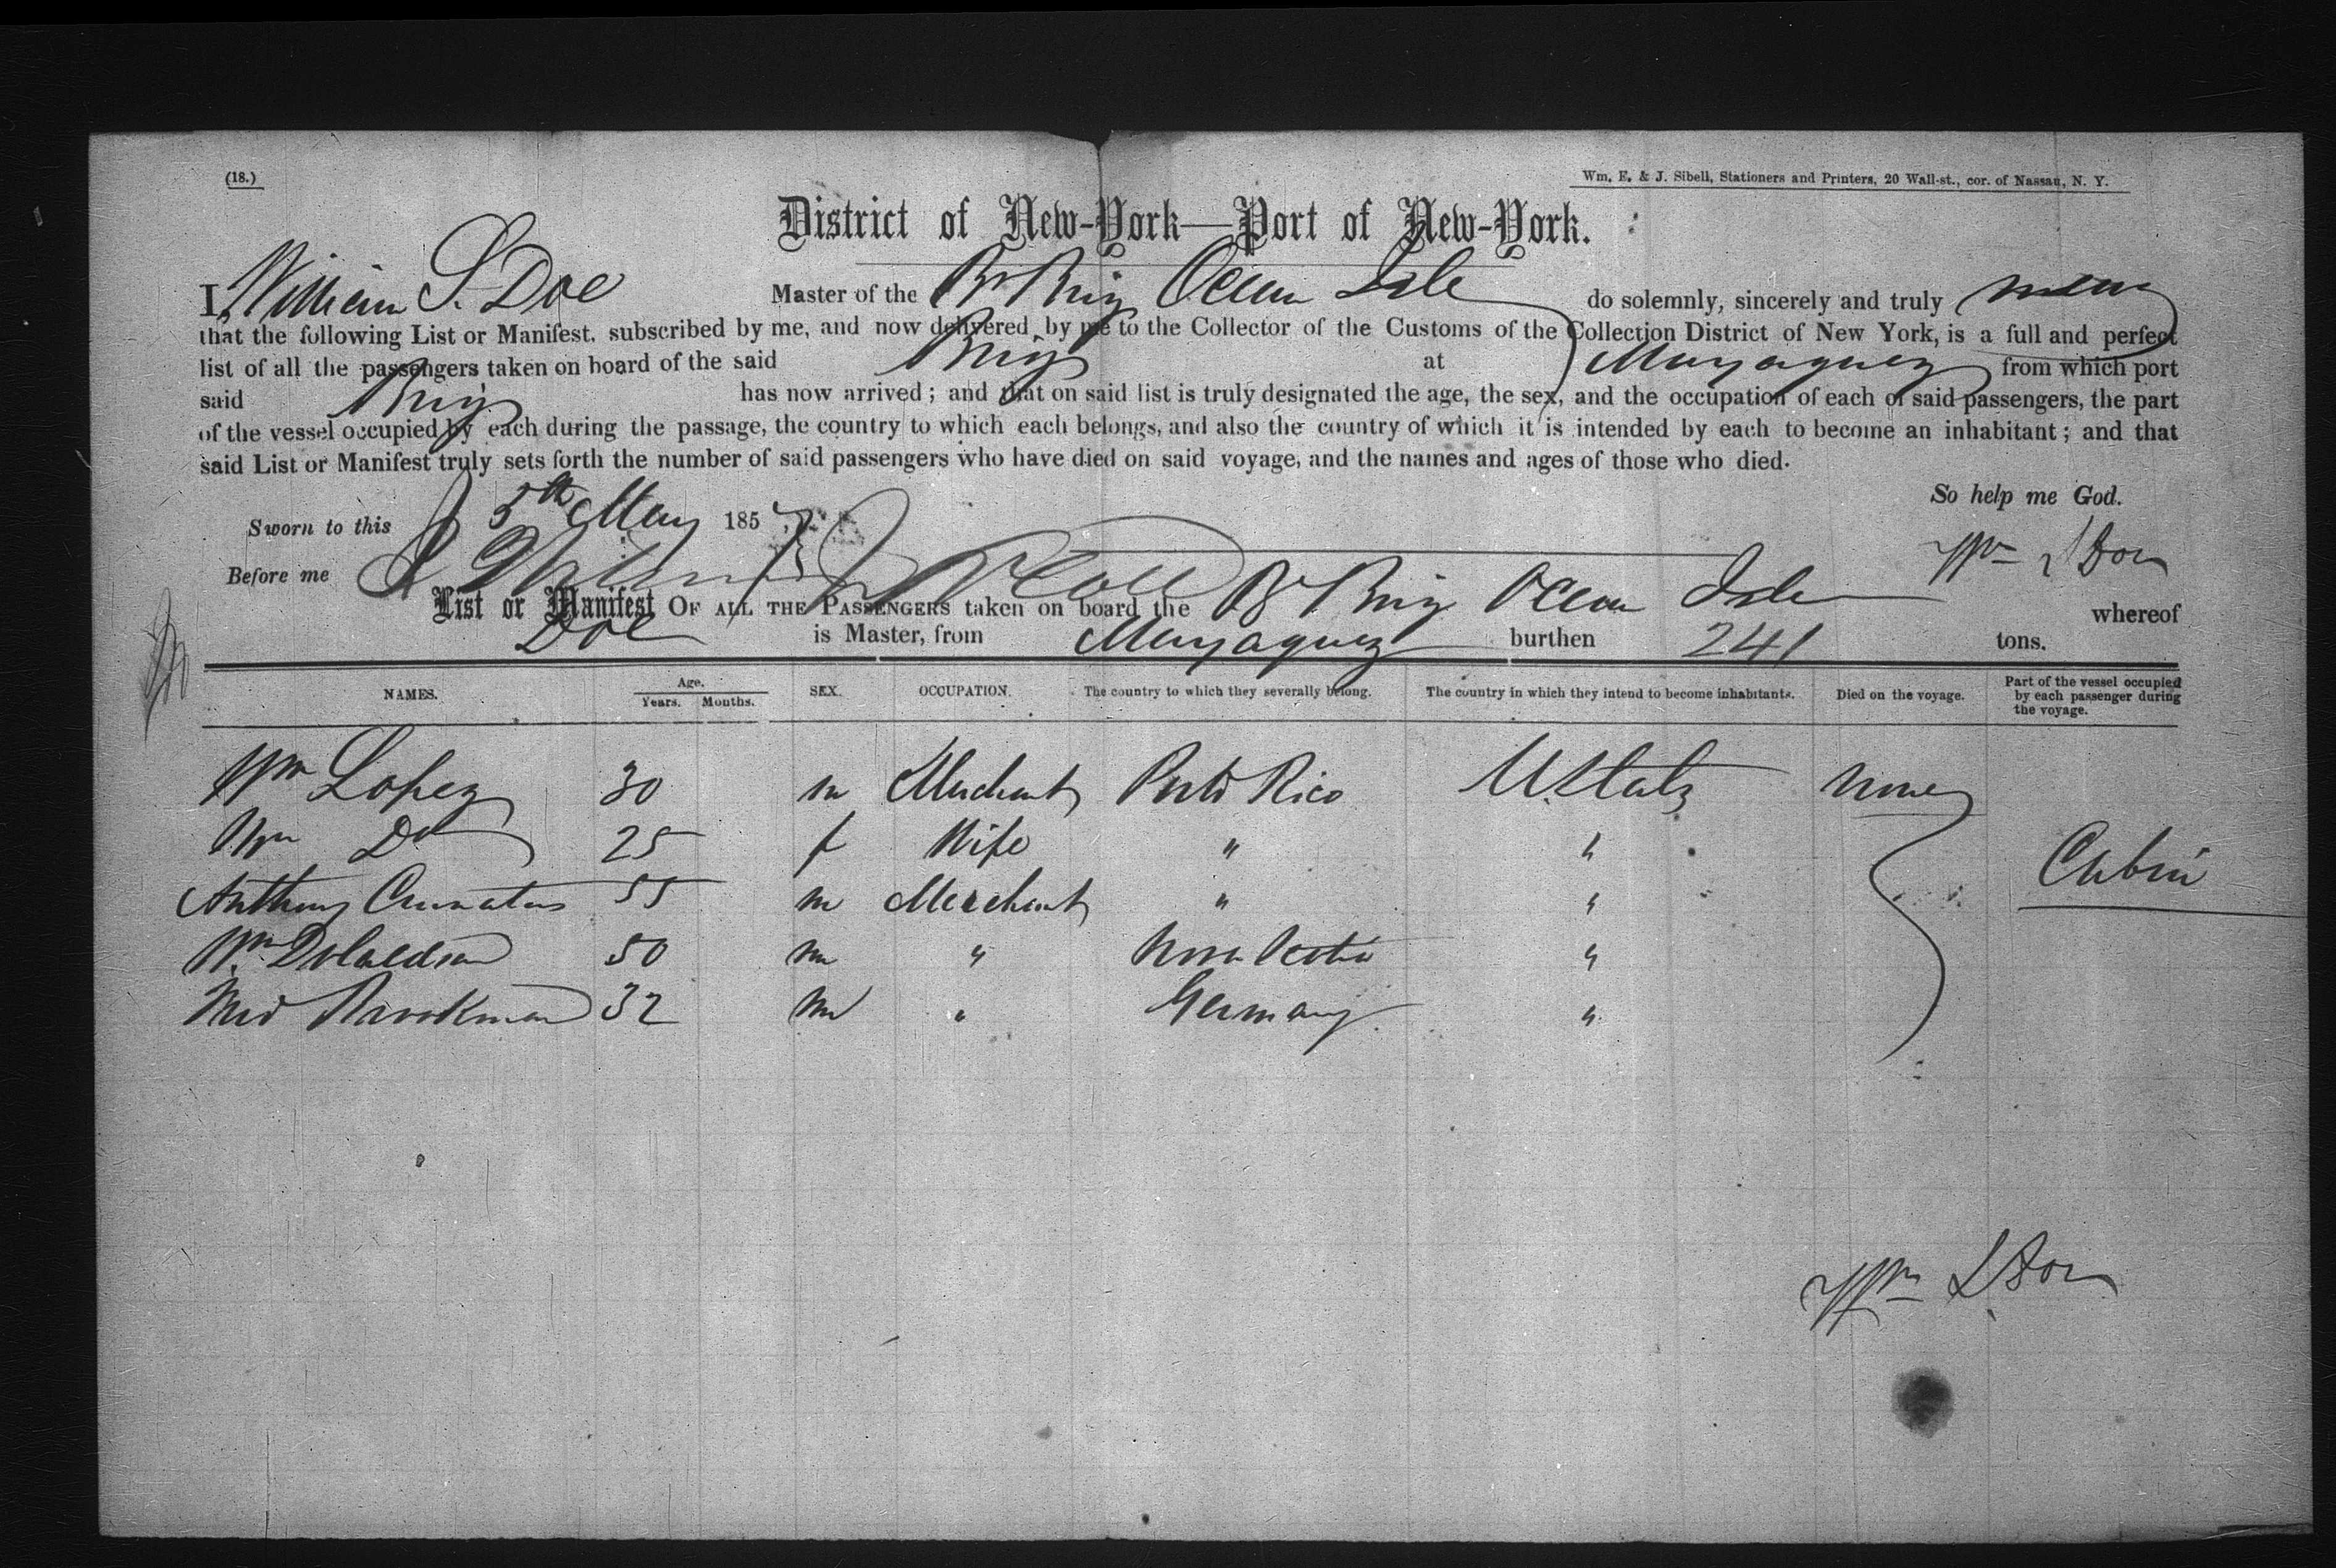 (18.)
Wm. E. & J. Sibell, Stationers and Printers, 20 Wall-st., cor. of Nassau, N. Y.
District of New-York—Port of New-York.
I, William S. Doe Master of the Br Brig Ocean Isle do solemnly, sincerely and truly swear
that the following List or Manifest, subscribed by me, and now delivered by me to the Collector of the Customs of the Collection District of New York, is a full and perfect
list of all the passengers taken on board of the said Brig at Mayaguez from which port
said Brig has now arrived; and that on said list is truly designated the age, the sex, and the occupation of each of said passengers, the part
of the vessel occupied by each during the passage, the country to which each belongs, and also the country of which it is intended by each to become an inhabitant; and that
said List or Manifest truly sets forth the number of said passengers who have died on said voyage, and the names and ages of those who died.
So help me God.
Sworn to this 5th May 1857
Wm S Doe
Before me
List or Manifest OF ALL THE PASSENGERS taken on board the Br Brig Ocean Isle whereof
Doe is Master, from Mayaguez burthen 241 tons.
NAMES. Age. Years. Months. SEX. OCCUPATION. The country to which they severally belong. The country in which they intend to become inhabitants. Died on the voyage. Part of the vessel occupied by each passenger during the voyage.
Wm Lopez 30 m Merchant Porto Rico U. States none
Do 25 f Wife " "
Anthony 55 m Merchant " " Cabin
Wm 50 m " Nova Scotia "
32 m " Germany "
Wm S Doe